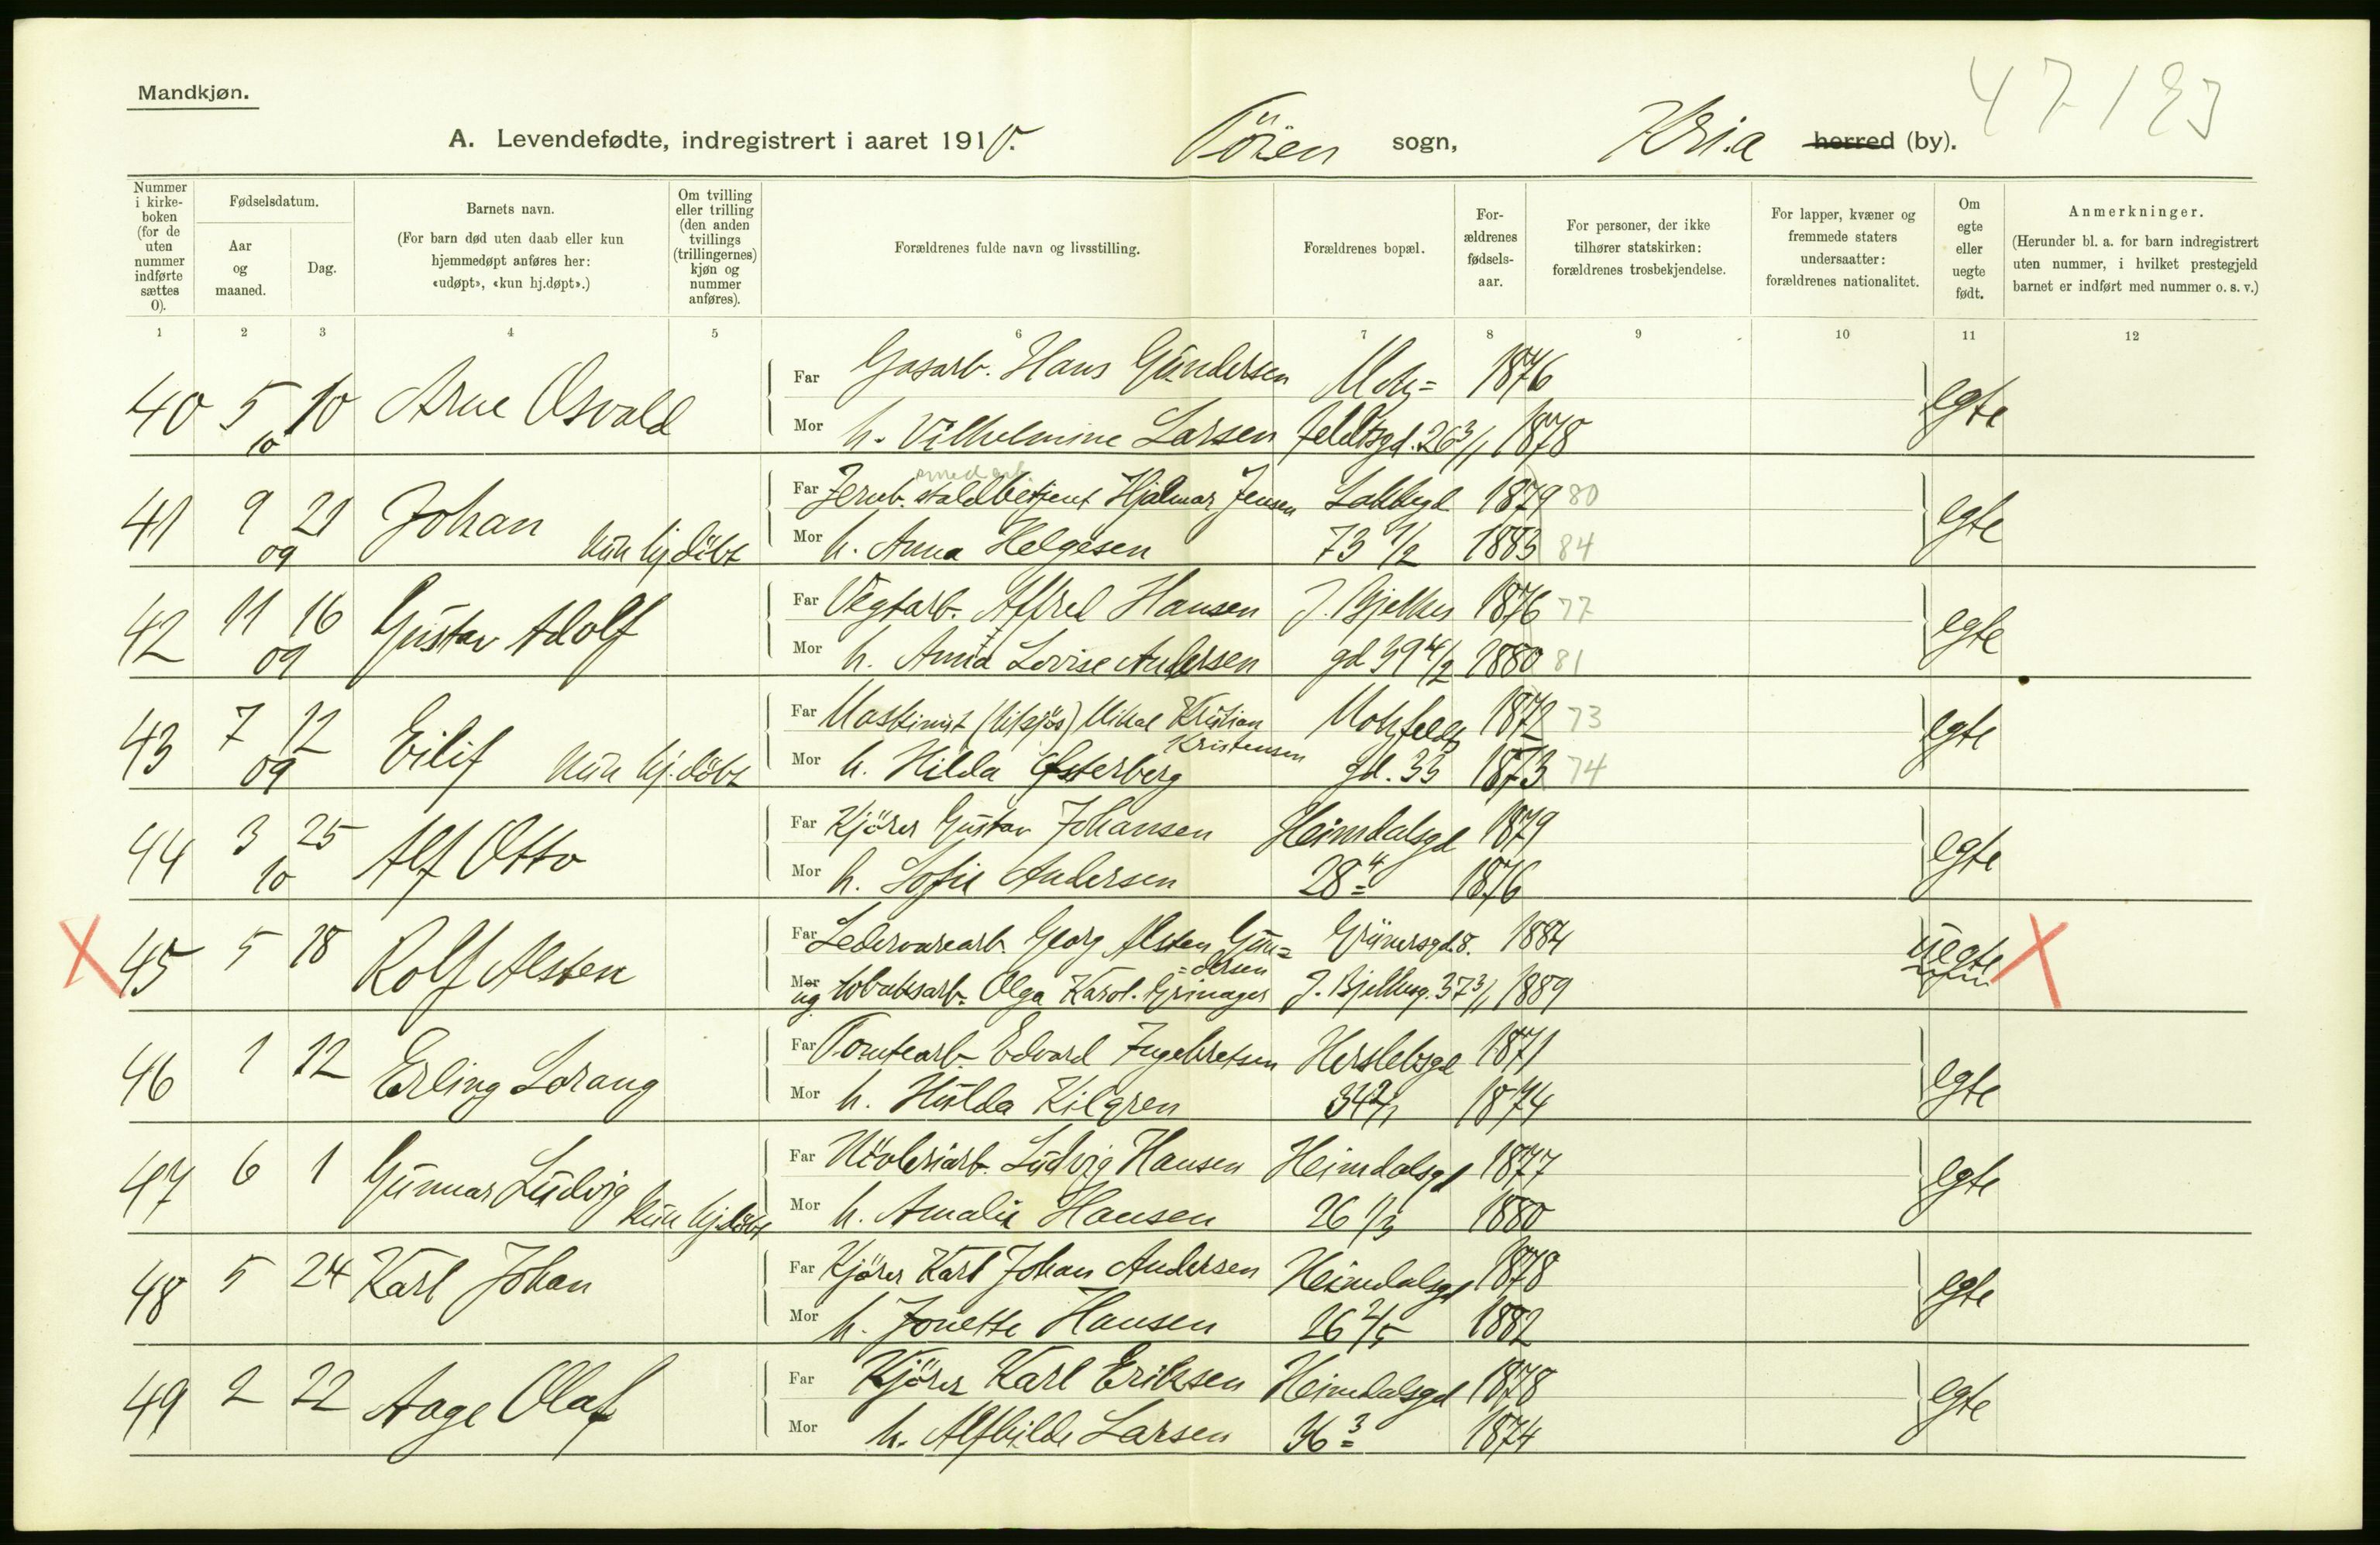 47/193
Mandkjøn.
A. Levendefødte, indregistrert i aaret 1910. Töien sogn, Kria herred (by).
Nummer i kirkeboken (for de uten nummer indførte sættes 0).
Fødselsdatum.
Aar og maaned.
Dag.
Barnets navn.
(For barn død uten daab eller kun hjemmedøpt anføres her: «udøpt», «kun hj.døpt».)
Om tvilling eller trilling (den anden tvillings (trillingernes) kjøn og nummer anføres).
Forældrenes fulde navn og livsstilling.
Forældrenes bopæl.
For-ældrenes fødsels-aar.
For personer, der ikke tilhører statskirken: forældrenes trosbekjendelse.
For lapper, kvæner og fremmede staters undersaatter: forældrenes nationalitet.
Om egte eller uegte født.
Anmerkninger.
(Herunder bl. a. for barn indregistrert uten nummer, i hvilket prestegjeld barnet er indført med nummer o. s. v.)
1 2 3 4 5 6 7 8 9 10 11 12
40 5 10 10 Arne Osvald
Far Gasarb. Hans Gundersen Motz= 1876 egte
Mor h. Vilhelmine Larsen feldtsgd. 26 3/1 1878
41 9 09 21 Johan kun hj.döbt
smedarb
Far Jernb. staldbetjent Hjalmar Jensen Lakkegd 1879 80 egte
Mor h. Anna Helgesen 73 1/2 1883 84
42 11 09 16 Gustav Adolf
Far Vegtarb. Alfred Hansen J. Bjelkes 1876 77 egte
Mor h. Anna Lovise Andersen gd 39 4/2 1880 81
43 7 09 12 Eilif kun hj.döbt
Far Maskinist (tilsjös) Mikal Kristian Kristensen Motzfeldts 1872 73 egte
Mor h. Hilda Østerberg gd. 33 1873 74
44 3 10 25 Alf Otto
Far Kjörer Gustav Johansen Heimdalsgd 1879 egte
Mor h. Sofie Andersen 28 4 1876
X 45 5 18 Rolf Alsten
Far Ledervarearb. Georg Alsten Gun= =dersen Grünersgd. 8. 1884 uegte X
Mor ug tobaksarb. Olga Karol. Grinager J. Bjelkesg. 37 3/1 1889
46 1 12 Erling Lorang
Far Tomtearb. Edvard Ingebretsen Herslebsgd 1871 egte
Mor h. Hulda Kilgren 34 2/1 1874
47 6 1 Gunnar Ludvig kun hj.döbt
Far Ludvig Hansen Heimdalsgd 1877 egte
Mor h. Amalie Hansen 26 1/3 1880
48 5 24 Karl Johan
Far Kjörer Karl Johan Andersen Heimdalsgd 1878 egte
Mor h. Jonette Hansen 26 2/5 1882
49 2 22 Aage Olaf
Far Kjörer Karl Eriksen Heimdalsgd 1878 egte
Mor h. Alfhilde Larsen 36 3 1874